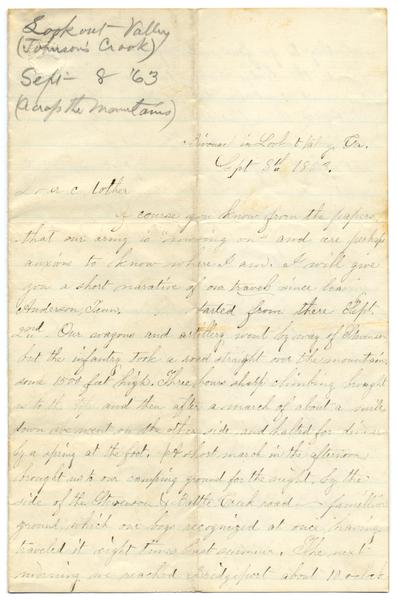 Lookout Valley
(Johnson's Crook)
Sept 8 '63
(Across the Mountains)
Bivouac in Lookout Valley, Ga.
Sept 8th 1863.
Dear Mother
Of course you know from the papers
that our army is "moving on" and are perhaps
anxious to know where I am. I will give
you a short narrative of our travels since leaving
Anderson, Tenn. started from there Sept.
2nd. Our wagons and artillery went by way of Stevenson
but the infantry took a road straight over the mountain
some 1500 feet high. Three hours sharp climbing brought
us to the top and then after a march of about a mile
down we went on the other side and halted for dinner
by a spring at the foot. A short march in the afternoon
brought us to our camping ground for the night, by the
side of the Stevenson & Battle Creek road - familiar
ground which our boys recognized at once, having
traveled it eight times last summer. The next
morning we reached Bridgeport about 10 oclock